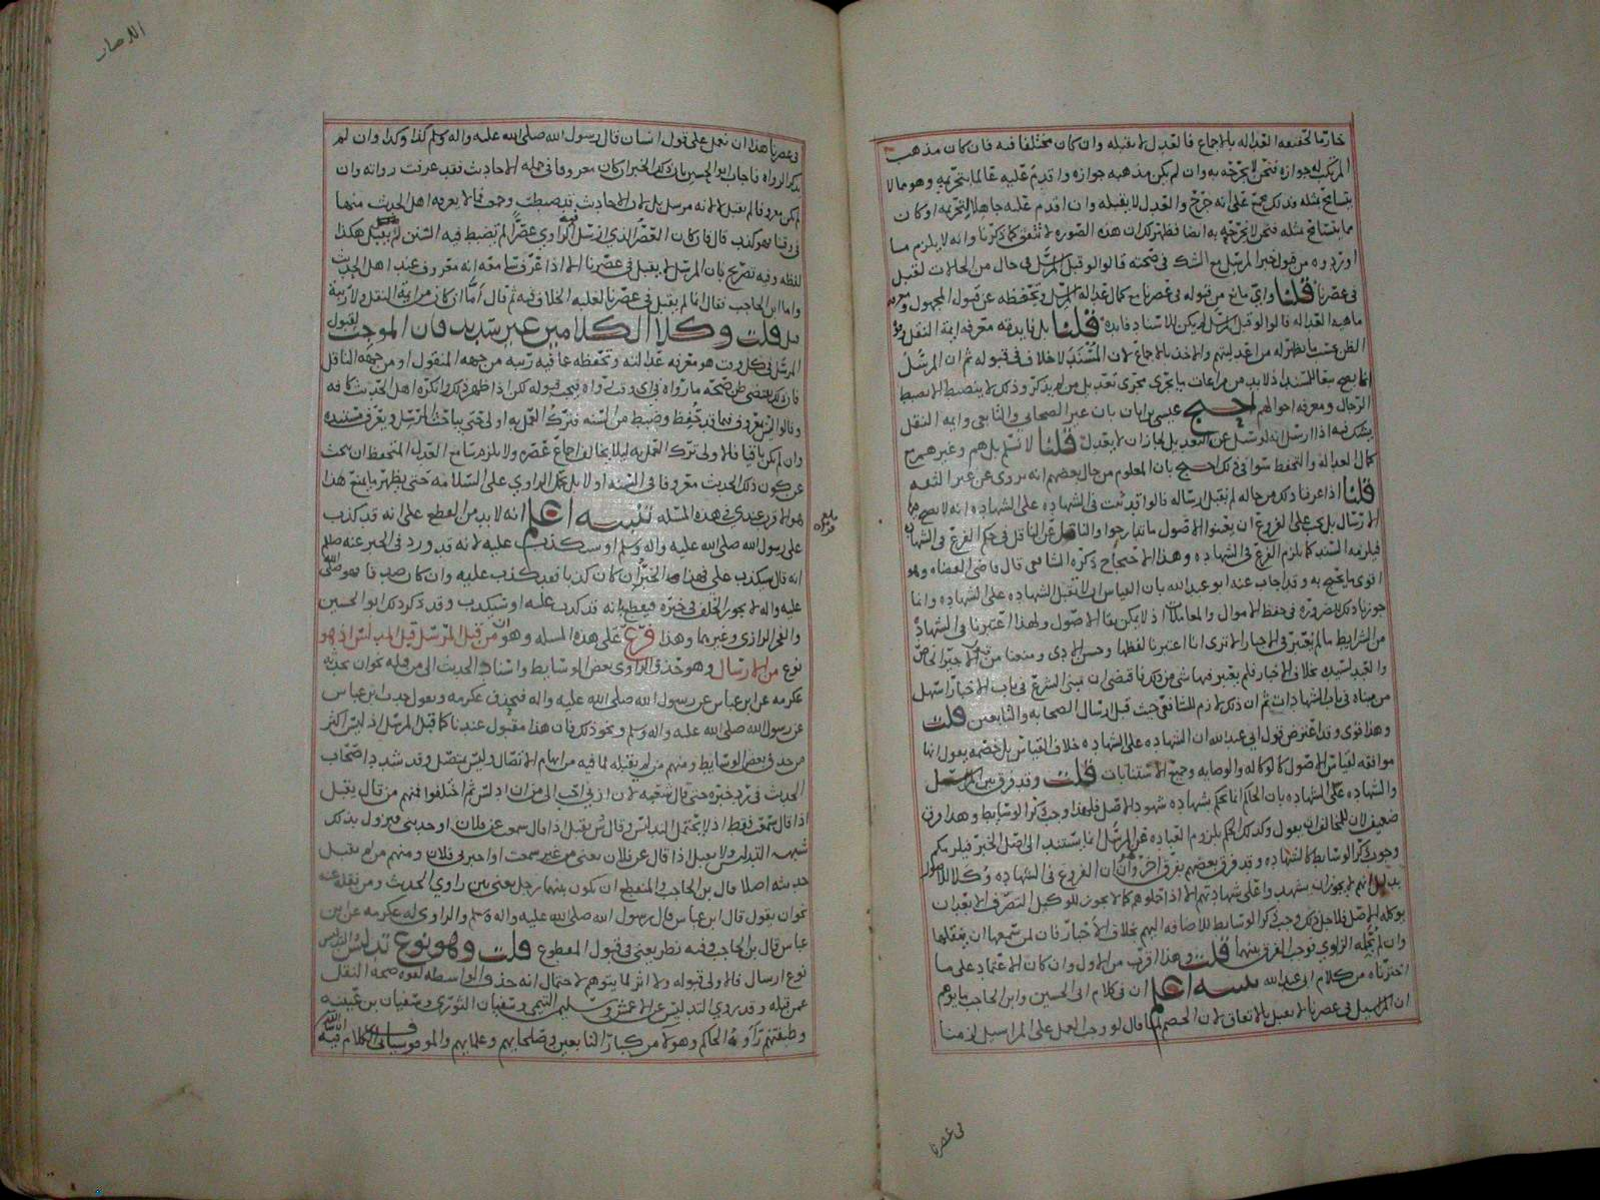 خارمًا لحقيقه العداله بالاجماع فالعدل لا يقبله وان كان مختلفا فيه فان كان مذهب
المرتكب له جوازه فنحن لا نجرحه به وان لم يكن مذهبه جوازه واقدم عليه عالما بتحريمه وهو مما لا
يتسامح بمثله فذلك على انه جرح والعدل لا يقبله وان اقدم عليه جاهلا لتحريمه او كان
مما يتسامح بمثله فنحن لا نجرحه به ايضا فظهر لك ان هذه الصوره لا تتفق كما ذكرنا وانه لا يلزم ما
اوردوه من قبول خبر المرسل مع الشك في صحته قالوا لو قبل المرسل في حال من الحالات لقبل
في عصرنا قلنا واي مانع من قبوله في عصرنا مع كمال عدالة المرسل وتحفظه عن قبول المجهول
ماهيه العداله قالوا لو قبل المرسل لم يكن للاسناد فايده قلنا بل فايدته معرفه ايمة النقل
الظن بحسب ما يظهر له من اعدليتهم والاخذ بالاجماع لان المسند لا خلاف في قبوله ثم ان المرسل
الرجال ومعرفه احوالهم احتج عيسى بن ابان بان غير الصحابي والتابعي وايمه النقل
يشك فيه اذا ارسل انه لو سئل عن التعديل لجاز ان لا يعدل قلنا لا نسلم بل هم وغيرهم مع
كمال العداله والتحفظ سوا في ذلك احتج بان المعلوم من حال بعضهم انه يروي عن غير الثقه
قلنا اذا عرفنا ذلك من حاله لم نقبل ارساله قالوا قد ثبت في الشهاده على الشهاده انه لا يصح
الارسال بل يجب على الفروع ان يعينوا الاصول ما تدارجوا والناقل عن الناقل في حكم الفرع في الشهاده
فيلزمه السند كما يلزم الفرع في الشهاده وهذا الاحتجاج ذكره الشافعي قال قاضي القضاه وهو
اقوى ما يحتج به وقد اجاب عنه ابو عبد الله بان القياس ان لا تقبل الشهاده على الشهاده وانما
جوزنا ذلك للضروره في حفظ الاموال والمعاملات اذ لا يمكن بقا الاصول ولهذا اعتبرنا في الشهاده
من الشرايط ما لم يعتبر في الاخبار الا ترى انا اعتبرنا لفظها وحسن الادى ومنعنا من
من مبناه في باب الشهادات ثم ان ذلك لازم للشافعي حيث قبل ارسال الصحابه والتابعين قلت
وهذا قوي وقد اعترض قول ابي عبد الله ان الشهاده على الشهاده خلاف القياس بل خصمه يقول انها
موافقه لقياس الاصول كالوكاله والوصايه وجميع الاستنابات قلت وقد فرق بين المرسل
والشهاده على الشهاده بان الحاكم انما يحكم بشهاده شهود الاصل فلهذا وجب ذكر الوسايط وهذا فرق
ضعيف لان للمخالف ان يقول وكذلك الحكم بلزوم العباده عن المرسل انما يستند الى اصل الخبر فيلزمكم
وجوب ذكر الوسايط كالشهاده وقد فرق بعضهم بفرق اخر وان الفروع في الشهاده وكلا للاصول
انهم لا يجوز ان يشهدوا على شهادتهم الا اذا حملوهم كما لا يجوز للوكيل التصرف الا بعد ان
يوكله الاصل فلاجل ذلك وجب ذكر الوسايط للاضافه اليهم بخلاف الاخبار فان لمن سمعها ان ينقلها
وان لم يحمله الراوي فوجب الفرق بينهما قلت وهذا اقرب من الاول وان كان الاعتماد على ما
اخترناه من كلام ابي عبد الله تنبيه اعلم ان في كلام ابي الحسين وابن الحاجب ما يوهم
ان المراسيل في عصرنا لا تقبل بالاتفاق لان الخصم لما قال لو وجب العمل على المراسيل لزمنا
في عصرنا
الارصار
في عصرنا هذا ان نعمل على قول انسان قال رسول الله صلى الله عليه واله وسلم كذا وكذا وان لم
يذكر الرواه فاجاب ابو الحسين بان ذلك الخبر ان كان معروفا في جمله الاحاديث فقد عرفت رواته وان
لم يكن معروفا لم يقبل لا لانه مرسل بل لان الاحاديث قد ضبطت وجمعت فما لا يعرفه اهل الحديث منها
في وقتنا فهو كذب قال فان كان العصر الذي ارسل فيه الراوي عصرا لم تضبط فيه السنن قبل هكذا
لفظه وفيه تصريح بان المرسل لا يقبل في عصرنا الا اذا عرفنا معه انه معروف عند اهل الحديث
واما ابن الحاجب فقال انما لم يقبل في عصرنا لغلبه الخلاف فيه ثم قال اما ان كان من ايمة النقل ولا ريبة
بل قلت وكلا الكلامين غير سديد فان الموجب لقبول
المرسل في كل وقت هو معرفه عدالته وتحفظه عما فيه ريبه من جهه المنقول او من جهه الناقل
فان ذلك يقتضي ظن صحته ما رواه في اي وقت رواه فيجب قبوله لكن اذا ظهر ذلك وانكره اهل الحديث كافه
وقالوا ليس بمعروف فيما قد حفظ وضبط من السنه فترك العمل به اولى حتى يباحث المرسل ويعرف مستنده
وان لم يكن باقيا فالاولى ترك العمل به ليلا يخالف اجماع عصره ولا يلزم سامع العدل المتحفظ ان يبحث
عن كون ذلك الحديث معروفا في السنه او لا بل يحمل الراوي على السلامه حتى يظهر ما يمنع هذا
هو الاقرب عندي في هذه المسله تنبيه اعلم انه لا بد من القطع على انه قد كذب
بلغ قراءه
على رسول الله صلى الله عليه واله وسلم او سيكذب عليه لانه قد ورد في الخبر عنه صلم
انه قال سيكذب علي فهذا الخبر ان كان كذبا فقد كذب عليه وان كان صدقا فهو صلى الله
عليه واله لا يجوز الخلف في خبره فيقطع بانه قد كذب عليه او سيكذب وقد ذكر ذلك ابو الحسين
والفخر الرازي وغيرهما وهذا فرع على هذه المسله وهو ان من قبل المرسل قبل المدلس اذ هو
نوع من الارسال وهو حذف الراوي بعض الوسايط واسناد الحديث الى من قبله نحو ان يحدثه
عكرمه عن ابن عباس عن رسول الله صلى الله عليه واله فيحذف عكرمه ويقول حدث ابن عباس
عن رسول الله صلى الله عليه واله وسلم ونحو ذلك فان هذا مقبول عندنا كما قبل المرسل اذ ليس اكثر
من حذف بعض الوسايط ومنهم من لم يقبله لما فيه من ايهام الاتصال وليس بمتصل وقد شدد اصحاب
الحديث في رد خبره حتى قال شعبه لان ازني احب الي من ان ادلس ثم اختلفوا فمنهم من قال يقبل
اذا قال سمعت فقط اذ لا يحتمل التدليس وقال يقبل اذا قال سمعت عن فلان او حدثني فيزول بذلك
شبهه التدليس ولا يقبل اذا قال عن فلان يعني من غير سمعت او اخبرني فلان ومنهم من لم يقبل
حديثه اصلا قال بن الحاجب والمنقطع ان يكون بينهما رجل يعني بين راوي الحديث ومن نقله عنه
نحو ان يقول قال ابن عباس قال رسول الله صلى الله عليه واله وسلم والراوي له عكرمه عن بن
عباس قال بن الحاجب وفيه نظر يعني في قبول المقطوع قلت وهو نوع تدليس
نوع ارسال فالاولى قبوله ولا اثر لما يتوهم لاحتمال انه حذف الواسطه لقوه صحه النقل
عمن قبله وقد روي التدليس عن الاعمش وسليم التيمي وسفيان الثوري وسفيان بن عيينه
وطبقتهم رواه الحاكم وهولا من كبار التابعين وصلحايهم وعلمايهم والموقوف سياتي الكلام فيه